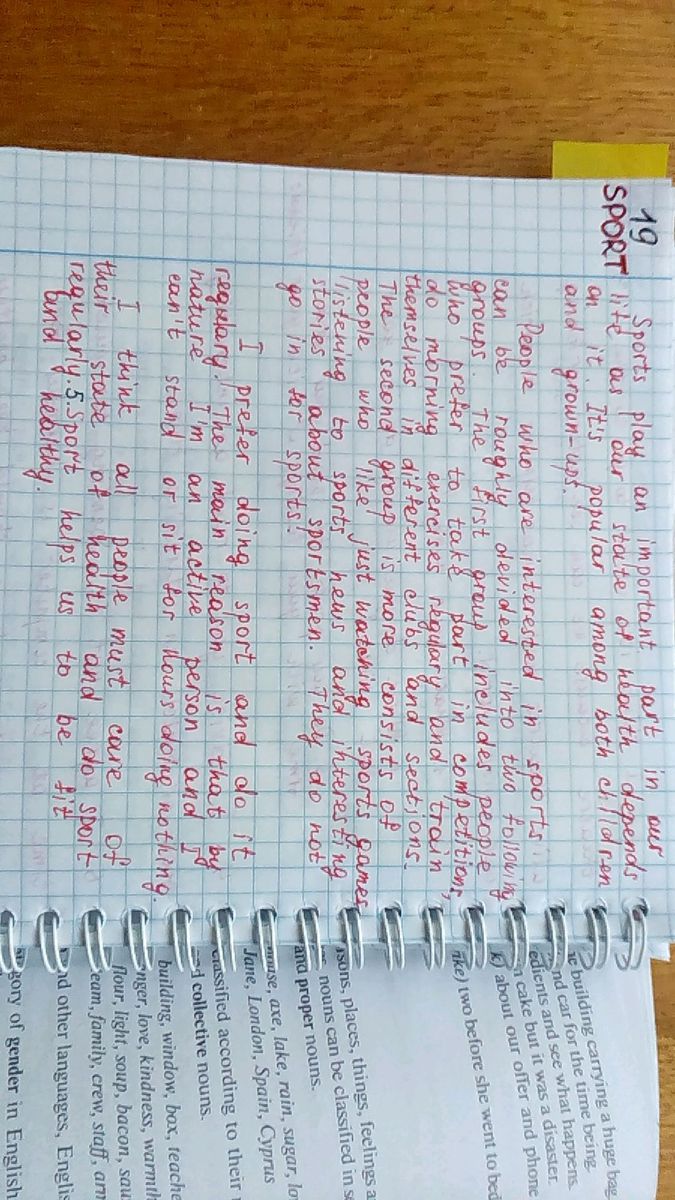 19
SPORT
Sports play an important part in our
life as our state of health depends
on it. It's popular among both children
and grown-ups.
People who are interested in sports
can be roughly devided into two following
groups. The first group includes people
who prefer to take part in competitions,
do morning exercises regulary and train
themselves in different clubs and sections.
The second group is more consists of
people who like just watching sports games
listening to sports news and interesting
stories about sportsmen. They do not
go in for sports.
I prefer doing sport and do it
regulary. The main reason is that by
nature I'm an active person and I
can't stand or sit for hours doing nothing.
I think all people must care of
their state of health and do sport
regularly. 5. Sport helps us to be fit
and healthy.
building carrying a huge ba
nd car for the time being.
edients and see what happens.
n cake but it was a disaster.
k) about our offer and phone
ike) two before she went to bed
sons, places, things, feelings a
nouns can be classified in s
and proper nouns.
mouse, axe, lake, rain, sugar, lo
Jane, London, Spain, Cyprus
classified according to their
d collective nouns.
building, window, box, teache
nger, love, kindness, warmth
flour, light, soup, bacon, sau
eam, family, crew, staff, arm
nd other languages, Englis
gory of gender in English